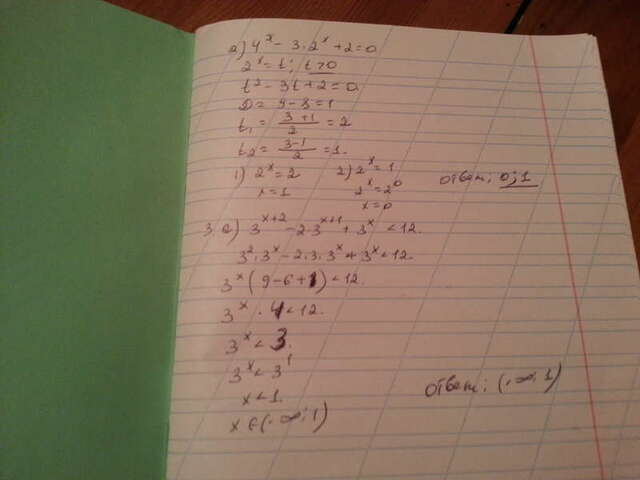 а) 4^x - 3·2^x + 2 = 0
2^x = t; t > 0
t² - 3t + 2 = 0
D = 9 - 8 = 1
t₁ = (3+1)/2 = 2
t₂ = (3-1)/2 = 1.
1) 2^x = 2 2) 2^x = 1
x = 1 2^x = 2^0
x = 0
Ответ: 0; 1
3. а) 3^(x+2) - 2·3^(x+1) + 3^x < 12.
3²·3^x - 2·3·3^x + 3^x < 12.
3^x (9 - 6 + 1) < 12.
3^x · 4 < 12.
3^x < 3.
3^x < 3^1
x < 1.
x ∈ (-∞; 1)
Ответ: (-∞; 1)